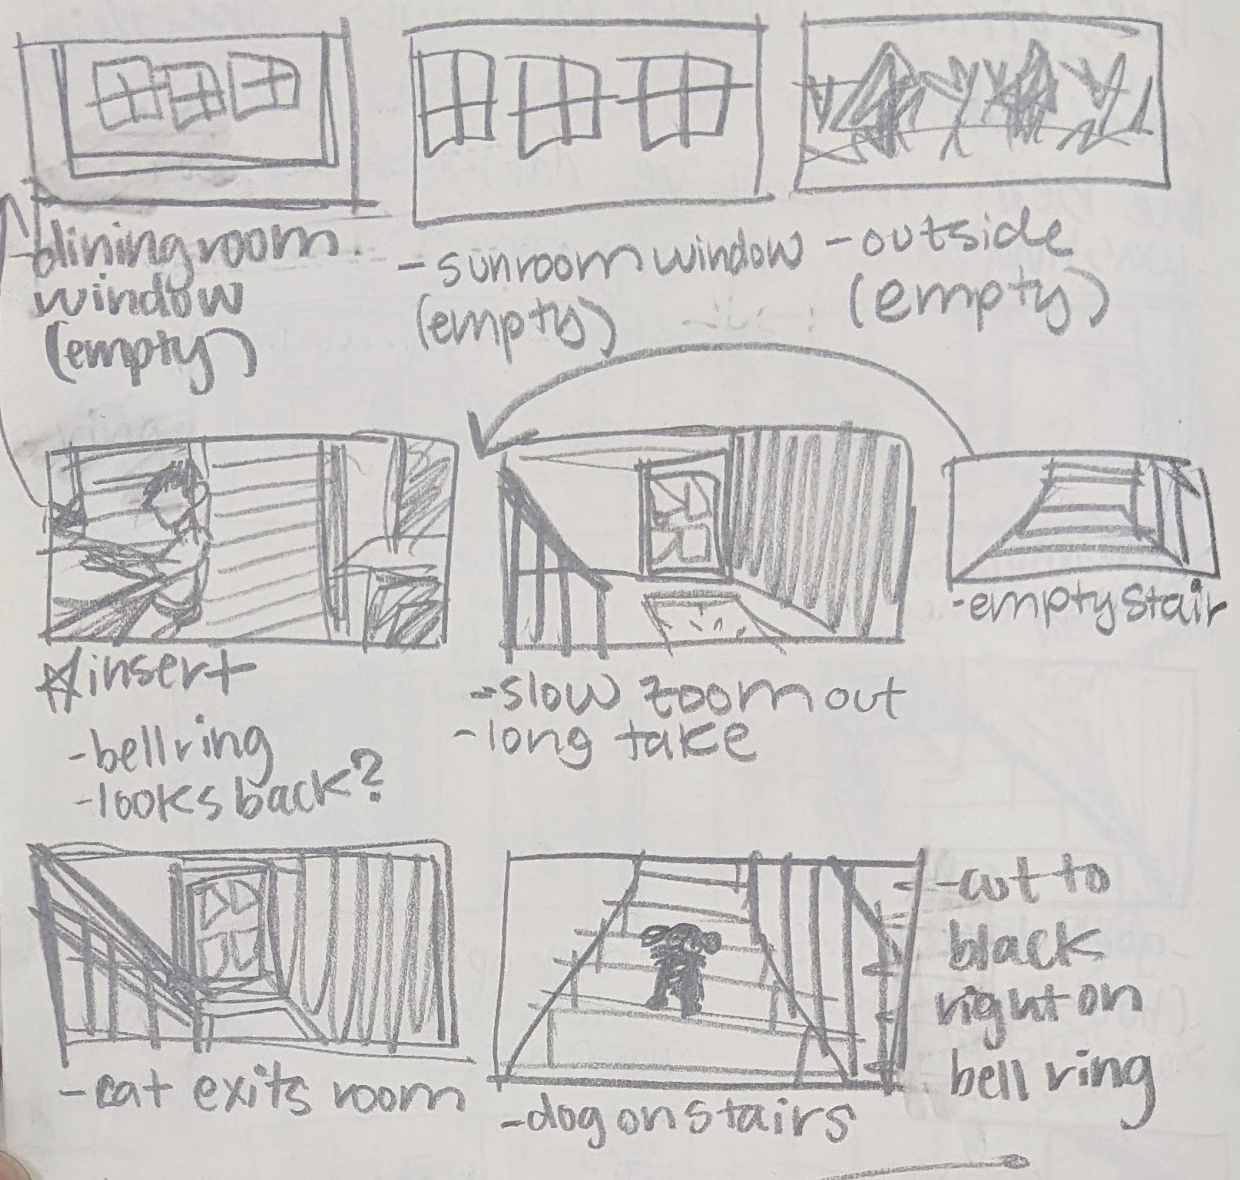 -diningroom
window
(empty)
-sunroom window
(empty)
-outside
(empty)
-empty stair
☆insert
-bell ring
-looks back?
-slow zoom out
-long take
-cat exits room
-dog on stairs
-cut to
black
right on
bell ring